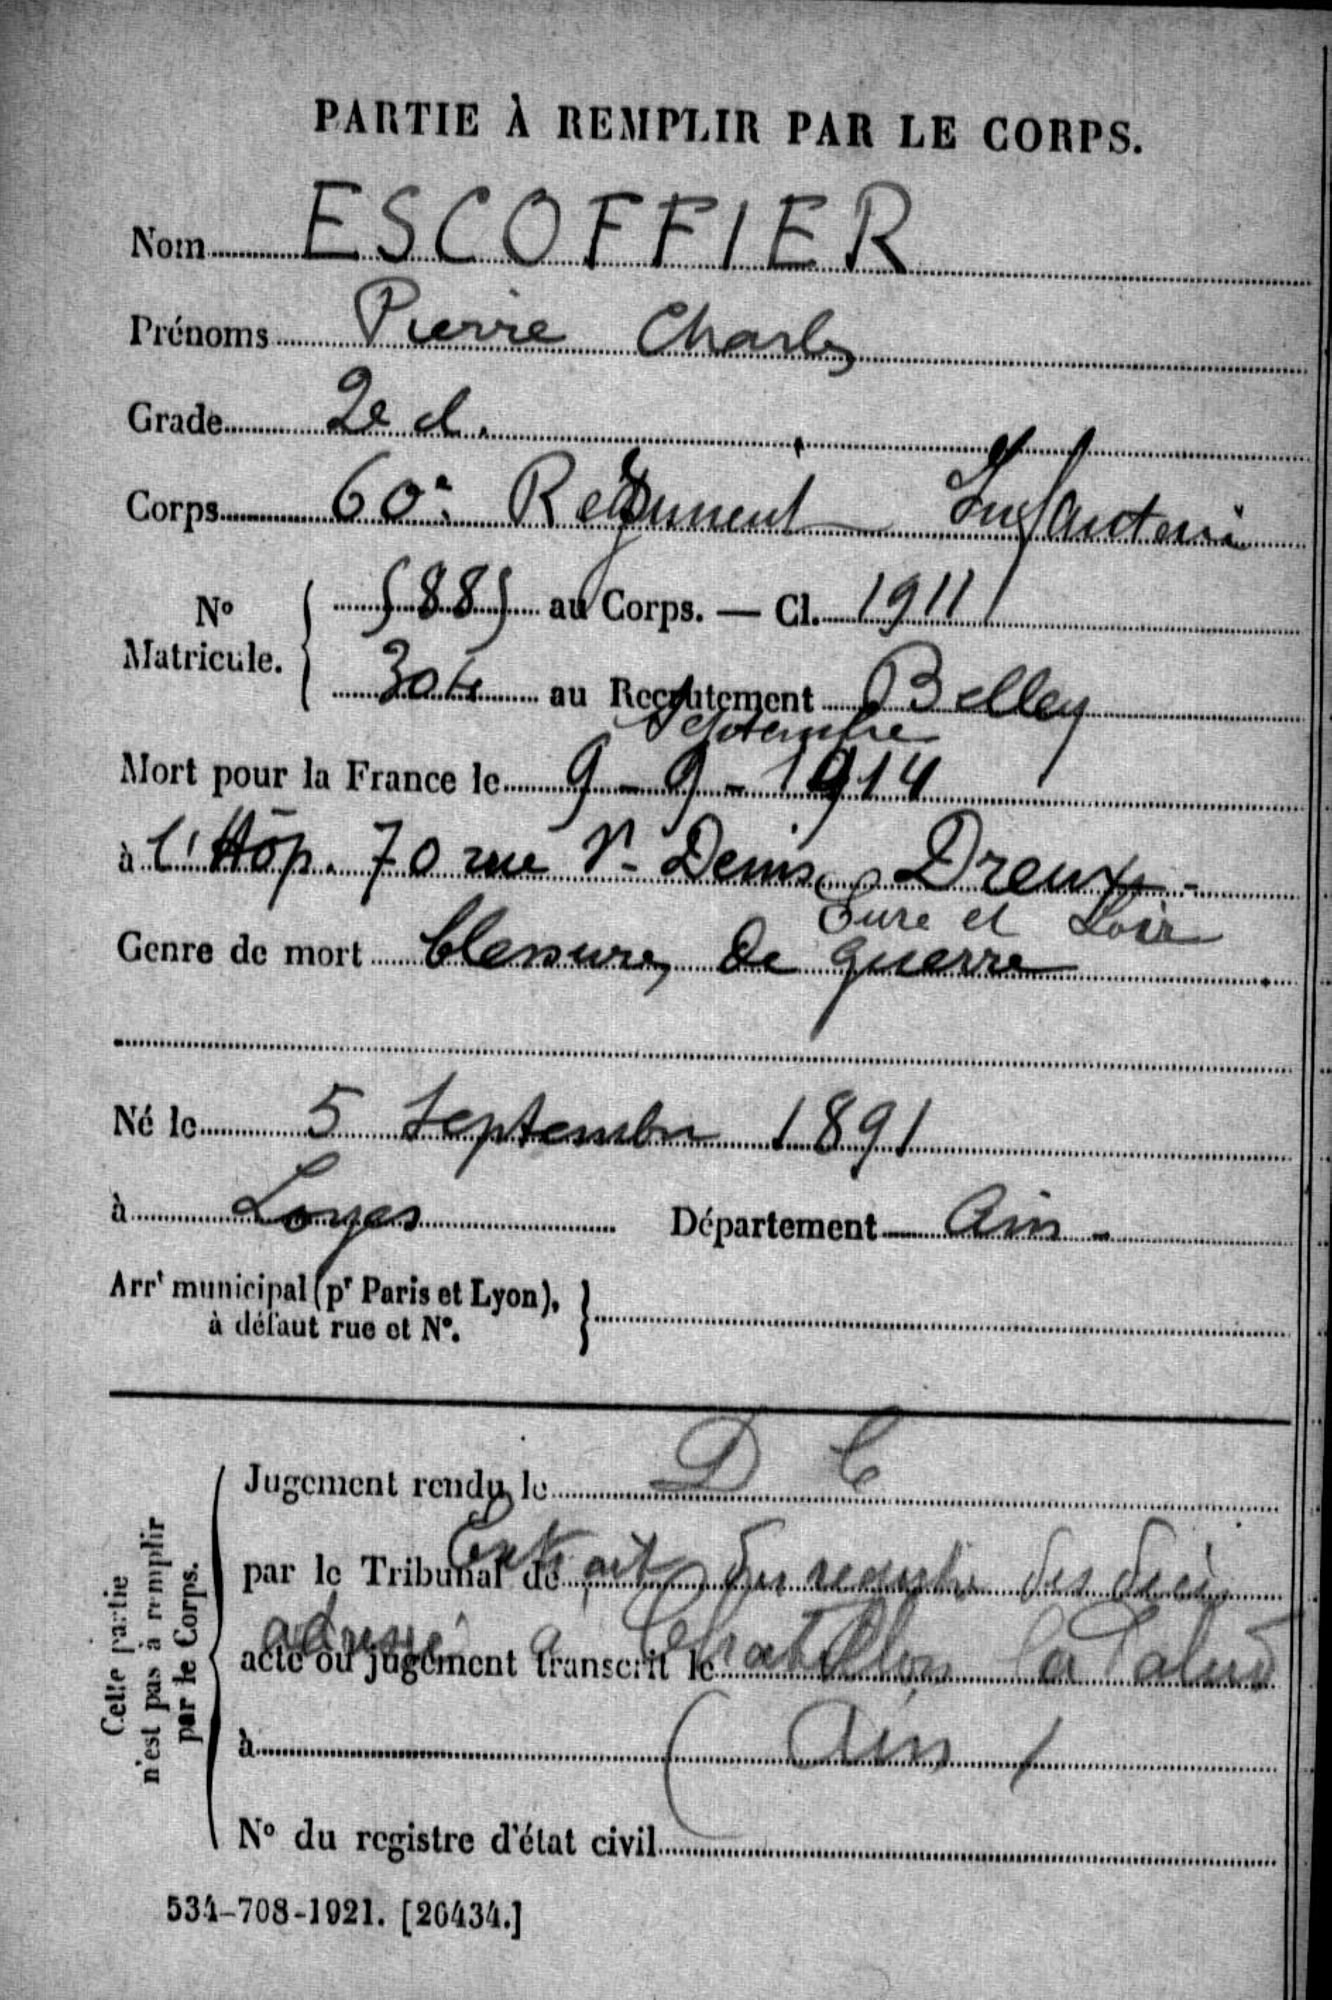 PARTIE À REMPLIR PAR LE CORPS.
Nom ESCOFFIER
Prénoms Pierre Charles
Grade 2e cl.
Corps 60e Régiment Infanterie
No Matricule. { 5885 au Corps. — Cl. 1911
304 au Recrutement Belley
Septembre
Mort pour la France le 9-9-1914
à l'Hôp. 70 rue St Denis Dreux -
Eure et Loir
Genre de mort blessures de guerre
Né le 5 Septembre 1891
à Loyes Département Ain -
Arrt municipal (pr Paris et Lyon), à défaut rue et No. }
Cette partie n'est pas à remplir par le Corps.
Jugement rendu le D C
par le Tribunal de
Extrait du registre des décès
acte ou jugement transcrit le
adressé à Chatillon la Palud
à ( Ain )
No du registre d'état civil
534-708-1921. [20434.]